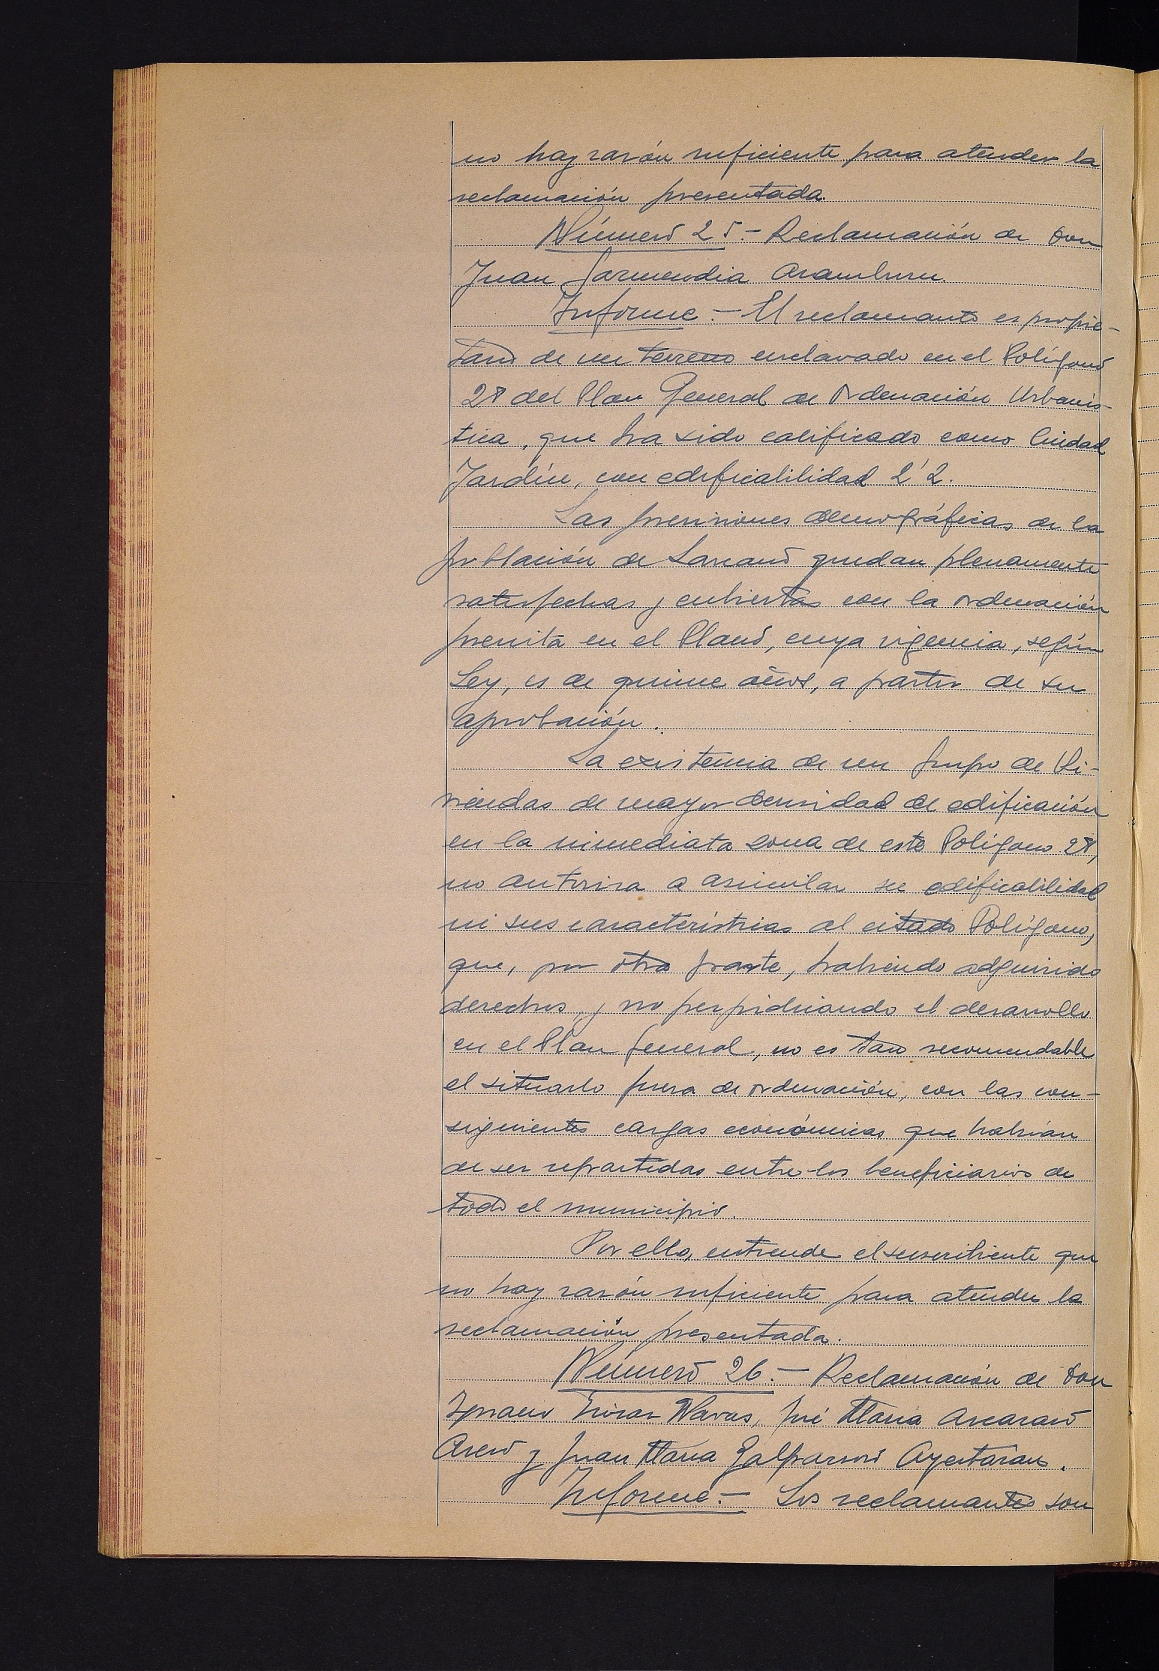 no hay razón suficiente para atender la
reclamación presentada.
Número 25.- Reclamación de Don
Juan Garmendia Aramburu.
Informe.- El reclamante es propie-
tario de un terreno enclavado en el Polígono
28 del Plan General de Ordenación Urbanís-
tica, que ha sido calificado como Ciudad
Jardín, con edificabilidad 2'2.
Las previsiones demográficas de la
población de Lazcano quedan plenamente
satisfechas y cubiertas con la ordenación
prevista en el Plano, cuya vigencia, según
Ley, es de quince años, a partir de su
aprobación.
La existencia de un Grupo de Vi-
viendas de mayor densidad de edificación
en la inmediata zona de este Polígono 28,
no autoriza a asimilar su edificabilidad
ni sus características al citado Polígono,
que, por otra parte, habiendo adquirido
derechos, y no perjudicando el desarrollo
en el Plan General, no es tan recomendable
el situarlo fuera de ordenación, con las con-
siguientes cargas económicas que habrían
de ser repartidas entre los beneficiarios de
todo el municipio.
Por ello, entiende el suscribiente que
no hay razón suficiente para atender la
reclamación presentada.
Número 26.- Reclamación de Don
Ignacio Navas, José Maria
y Juan Maria Galparsoro Ayestarán.
Informe.- Los reclamantes son